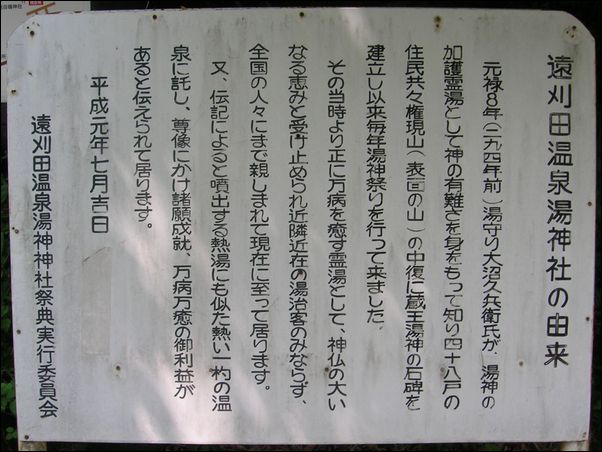 遠刈田温泉湯神社の由来
元禄8年(二九四年前)湯守り大沼久兵衛氏が、湯神の
加護霊湯として神の有難さを身をもって知り四十八戸の
住民共々権現山(表面の山)の中復に蔵王湯神の石碑を
建立し以来毎年湯神祭りを行って来ました。
その当時より正に万病を癒す霊湯として、神仏の大い
なる恵みと受け止められ近隣近在の湯治客のみならず、
全国の人々にまで親しまれて現在に至って居ります。
又、伝記によると噴出する熱湯にも似た熱い一杓の温
泉に託し、尊像にかけ諸願成就、万病万癒の御利益が
あると伝えられて居ります。
平成元年七月吉日
遠刈田温泉湯神神社祭典実行委員会